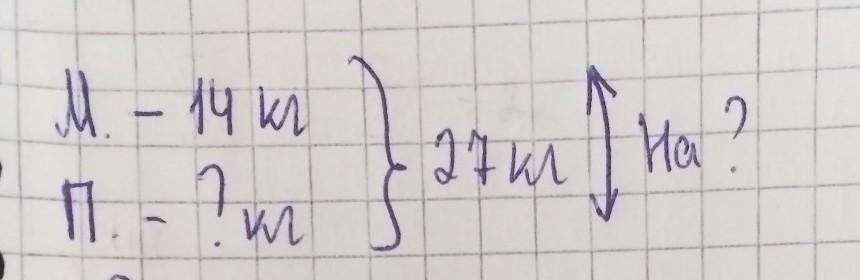 М. - 14 кг } 27 кг ↕ На ?
П. - ? кг